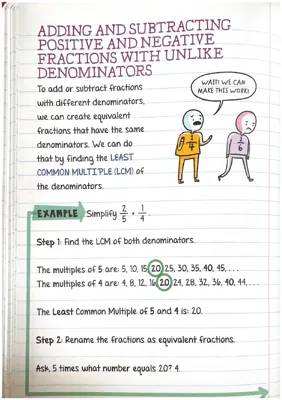 ADDING AND SUBTRACTING
POSITIVE AND NEGATIVE
FRACTIONS WITH UNLIKE
DENOMINATORS
To add or subtract fractions
with different denominators,
we can create equivalent
fractions that have the same
denominators. We can do
that by finding the LEAST
COMMON MULTIPLE (LCM) of
the denominators.
WAIT! WE CAN
MAKE THIS WORK!
EXAMPLE Simplify 2/5 + 1/4.
Step 1: Find the LCM of both denominators.
The multiples of 5 are: 5, 10, 15, 20, 25, 30, 35, 40, 45, . . .
The multiples of 4 are: 4, 8, 12, 16, 20, 24, 28, 32, 36, 40, 44, . . .
The Least Common Multiple of 5 and 4 is: 20.
Step 2: Rename the fractions as equivalent fractions.
Ask, 5 times what number equals 20? 4.